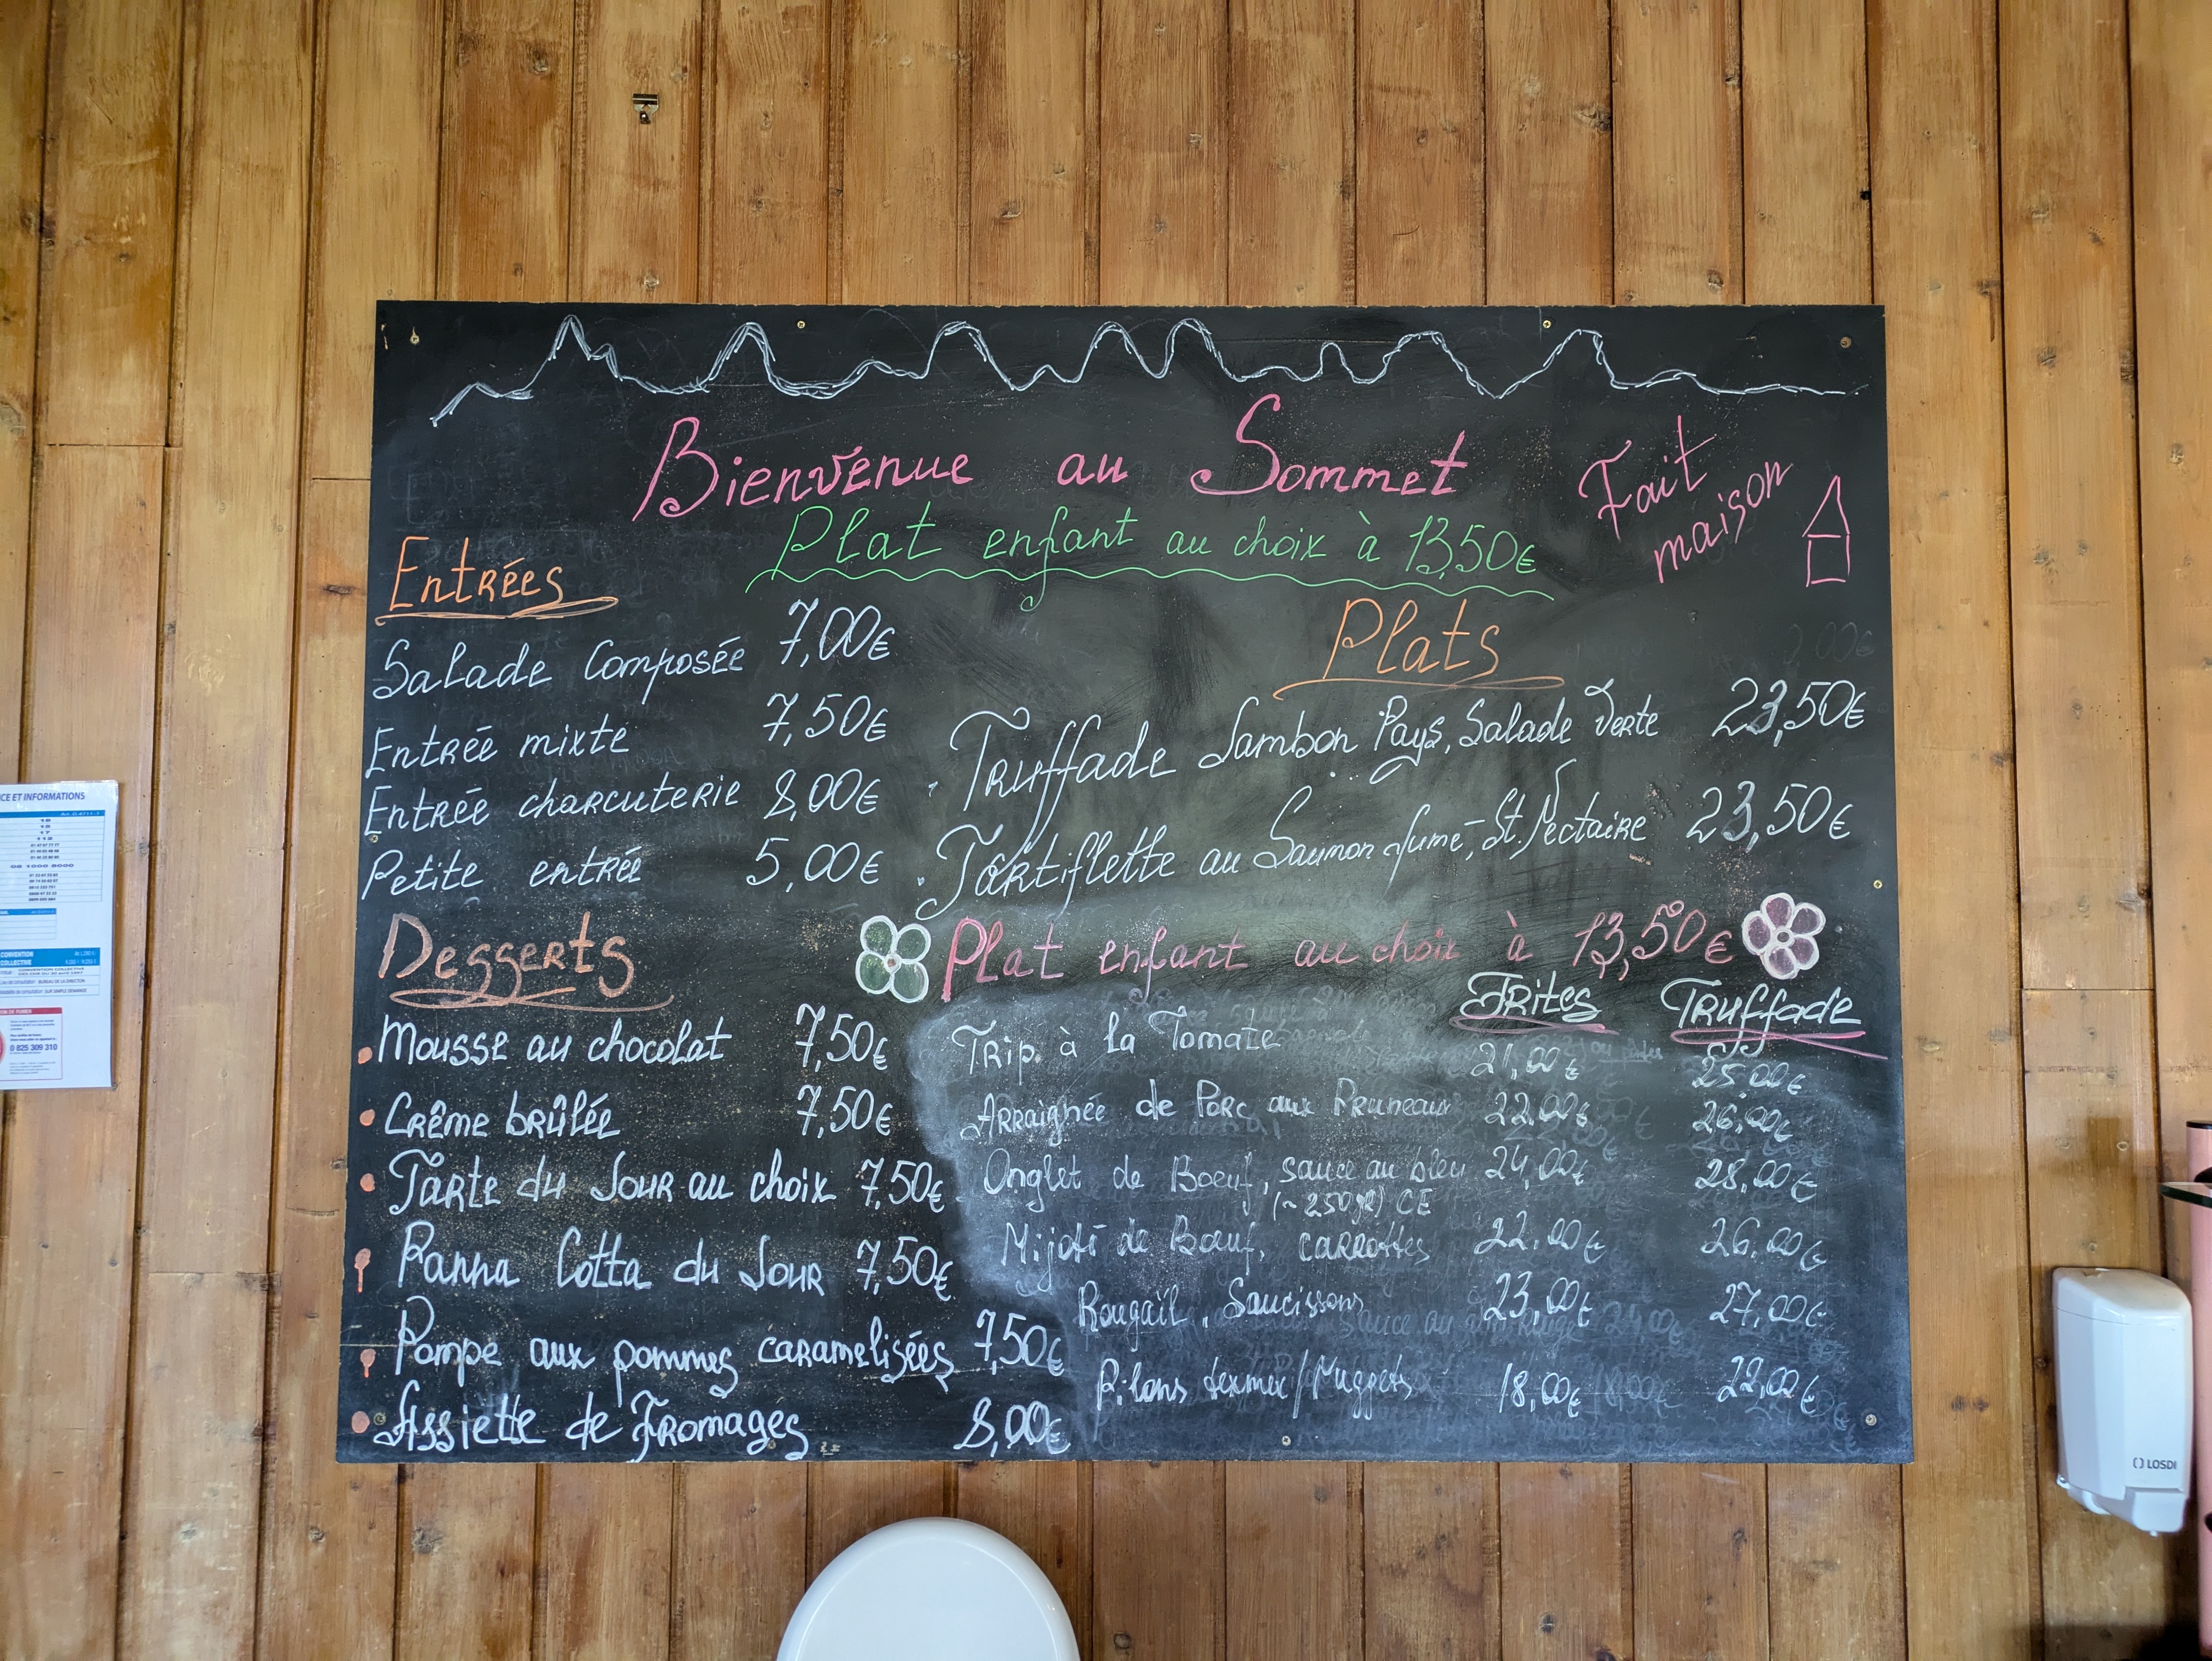 Bienvenue au Sommet
Fait
maison
Plat enfant au choix à 13,50€
Entrées
Salade Composée 7,00€
Entrée mixte 7,50€
Entrée charcuterie 8,00€
Petite entrée 5,00€
Desserts
Mousse au chocolat 7,50€
Crême brûlée 7,50€
Tarte du Jour au choix 7,50€
Panna Cotta du Jour 7,50€
Pompe aux pommes caramelisées 7,50€
Assiette de Fromages 8,00€
Plats
Truffade Jambon Pays, Salade Verte 23,50€
Tartiflette au Saumon fumé, St. Nectaire 23,50€
Plat enfant au choix à 13,50€
Frites Truffade
Trip à la Tomate 21,00€ 25,00€
Arraignée de Porc aux Pruneaux 22,00€ 26,00€
Onglet de Boeuf, sauce au bleu 24,00€ 28,00€
(~250gr) CE
Mijoté de Boeuf, carrottes 22,00€ 26,00€
Rougail, Saucissons 23,00€ 27,00€
Pilons texmex/Nuggets 18,00€ 22,00€
CE ET INFORMATIONS
18
15
17
112
CONVENTION
COLLECTIVE
0 825 309 310
LOSDI